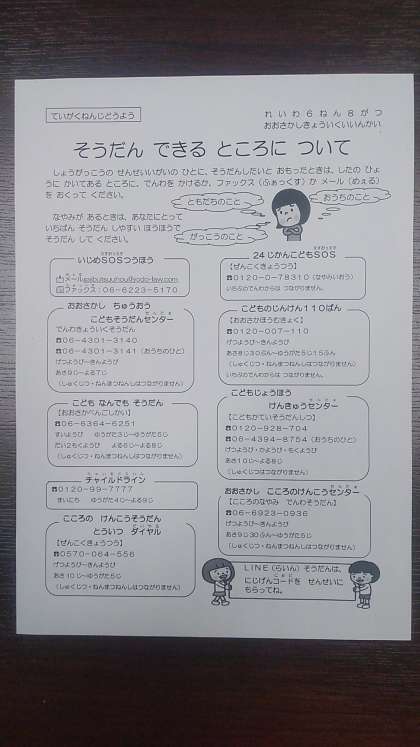 ていがくねんじどうよう
れいわ６ねん８がつ
おおさかしきょういくいいんかい
そうだん できる ところに ついて
しょうがっこうの せんせいいがいの ひとに、そうだんしたいと おもったときは、したの ひょ
うに かいてある ところに、でんわを かけるか、ファックス（ふぁっくす）か メール（めぇる）
を おくって ください。
ともだちのこと
おうちのこと
なやみが あるときは、あなたにとって
いちばん そうだん しやすい ほうほうで
そうだん して ください。
がっこうのこと
いじめＳＯＳつうほう
メール
ファックス：０６-６２２３-５１７０
おおさかし ちゅうおう
こどもそうだんセンター
でんわきょういくそうだん
☎０６-４３０１-３１４０
☎０６-４３０１-３１４１（おうちのひと）
げつようび～きんようび
あさ９じ～よる７じ
（しゅくじつ・ねんまつねんしはつながりません）
こども なんでも そうだん
【おおさかべんごしかい】
☎０６-６３６４-６２５１
すいようび ゆうがた３じ～ゆうがた５じ
だい２もくようび よる６じ～よる８じ
（しゅくじつ・ねんまつねんしはつながりません）
チャイルドライン
☎０１２０-９９-７７７７
まいにち ゆうがた４じ～よる９じ
こころの けんこうそうだん
とういつ ダイヤル
【ぜんこくきょうつう】
☎０５７０-０６４-５５６
げつようび～きんようび
あさ１０じ～ゆうがた５じ
（しゅくじつ・ねんまつねんしはつながりません）
２４じかんこどもＳＯＳ
【ぜんこくきょうつう】
☎０１２０-０-７８３１０（なやみいおう）
いちぶのでんわからは つながりません。
こどものじんけん１１０ばん
【おおさかほうむきょく】
☎０１２０-００７-１１０
げつようび～きんようび
あさ８じ３０ぷん～ゆうがた５じ１５ふん
（しゅくじつ・ねんまつねんしはつながりません）
いちぶのでんわからは つながりません。
こどもじょうほう
けんきゅうセンター
【こどもかていそうだんしつ】
☎０１２０-９２８-７０４
☎０６-４３９４-８７５４（おうちのひと）
げつようび・かようび・もくようび
あさ１０じ～よる８じ
（しゅくじつはつながりません）
おおさかし こころのけんこうセンター
【こころのなやみ でんわそうだん】
☎０６-６９２３-０９３６
げつようび～きんようび
あさ９じ３０ぷん～ゆうがた５じ
（しゅくじつ・ねんまつねんしはつながりません）
ＬＩＮＥ（らいん）そうだんは、
にじげんコードを せんせいに
もらってね。